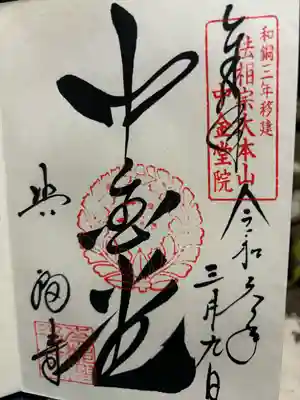 奉拝
和銅三年移建
法相宗大本山
中金堂院
令和六年
三月九日
中金堂
興福寺